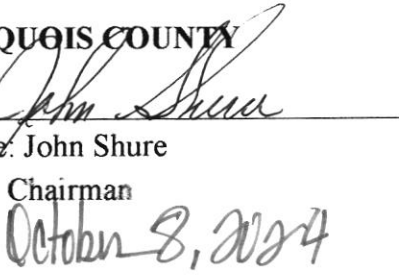 QUOIS COUNTY
John Shure
e: John Shure
Chairman
October 8, 2024